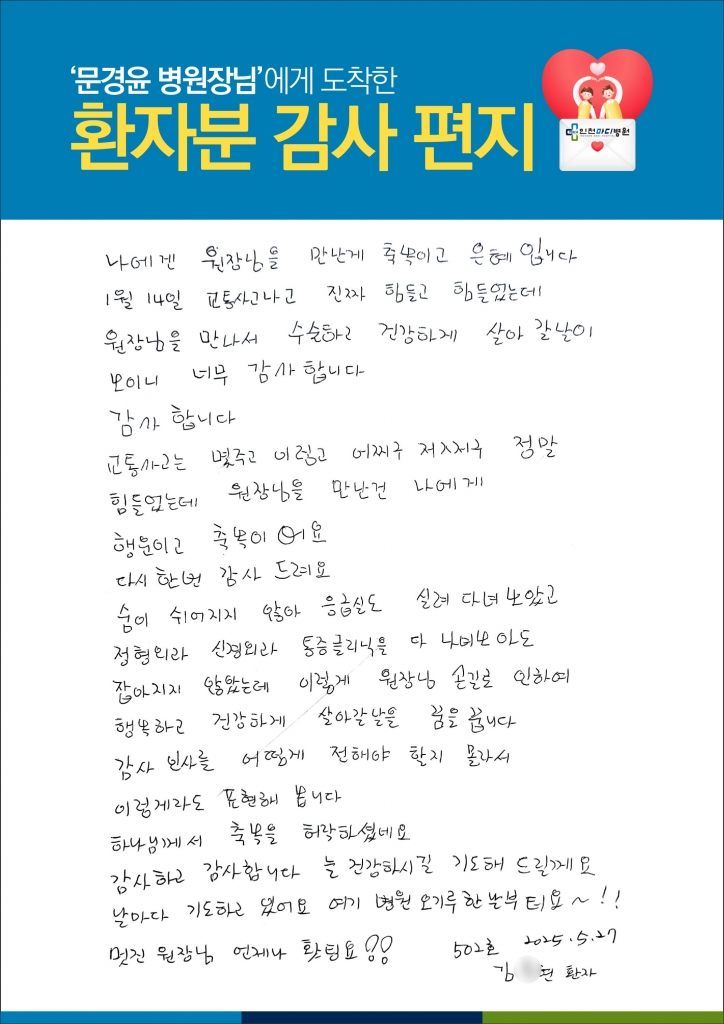 '문경윤 병원장님'에게 도착한
환자분 감사 편지
인천마디병원
나에겐 원장님을 만난게 축복이고 은혜입니다
1월 14일 교통사고나고 진짜 힘들고 힘들었는데
원장님을 만나서 수술하고 건강하게 살아 갈날이
보이니 너무 감사합니다
감사합니다
교통사고는 몇주고 이렇고 어쩌구 저쩌구 정말
힘들었는데 원장님을 만난건 나에게
행운이고 축복이에요
다시한번 감사 드려요
숨이 쉬어지지 않아 응급실도 실려 다녀보았고
정형외과 신경외과 통증클리닉을 다 다녀보아도
잡아지지 않았는데 이렇게 원장님 손길로 인하여
행복하고 건강하게 살아갈날을 꿈을꿉니다
감사 인사를 어떻게 전해야 할지 몰라서
이렇게라도 표현해 봅니다
하나님께서 축복을 허락하셨네요
감사하고 감사합니다 늘 건강하시길 기도해 드릴께요
날마다 기도하고 있어요 여기 병원 오기루한날부터요~!!
멋진 원장님 언제나 홧팅요!! 502호 2025.5.27
김 현 환자